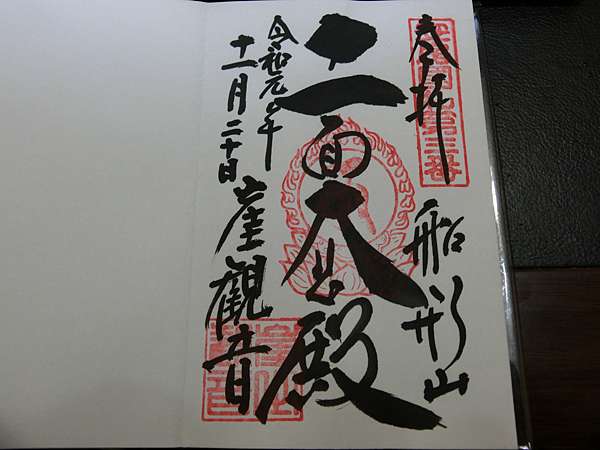 奉拝
船形山
十一面大悲殿
令和元年
十一月二十日
崖観音